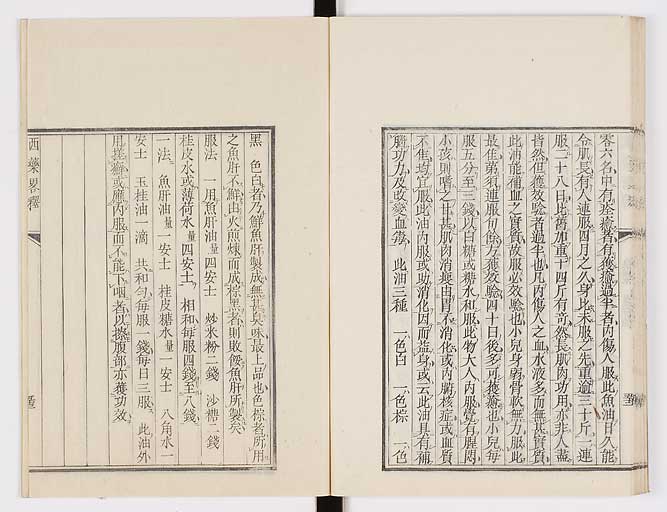 零六名中有痊癒者有獲痊癒過半者內傷人服此魚油日久能
令肌長有人連服四月之久身比未服之先重逾三十斤一連
服二十八日比舊加重十四斤有竒然長肌肉功用亦非人盡
皆然但獲效驗者過半也凡內傷人之血水液多而無甚實質
此油能補血之實質故服必效驗也小兒身弱骨軟無力服此
最佳第須連服旬餘方獲效驗四十日後多可獲痊也小兒每
服五分至三錢以白糖或糖水和服此物大人內服覺有腥悶
小孩則嗜之甘甚肌肉消瘦由胃不消化或內腑核症或血質
不佳均宜服此油內服或助消化因而益身或云此油具有補
臟功力及改變血質 此油三種 一色白 一色棕 一色
黑 色白者乃鮮魚肝製成無甚臭味最上品也色棕者所用
之魚肝不鮮由火煎煉而成棕黑者則敗餿魚肝所製矣
服法 一用魚肝油量四安士 炒米粉二錢 沙糖二錢
桂皮水或薄荷水量四安士 相和每服四錢至八錢
一法 魚肝油量一安士 桂皮糖水量一安士 八角水一
安士 玉桂油一滴 共和勻每服一錢每日三服 此油外
用搓癬或癦內服而不能下咽者以擦腹部亦獲功效
西藥畧釋